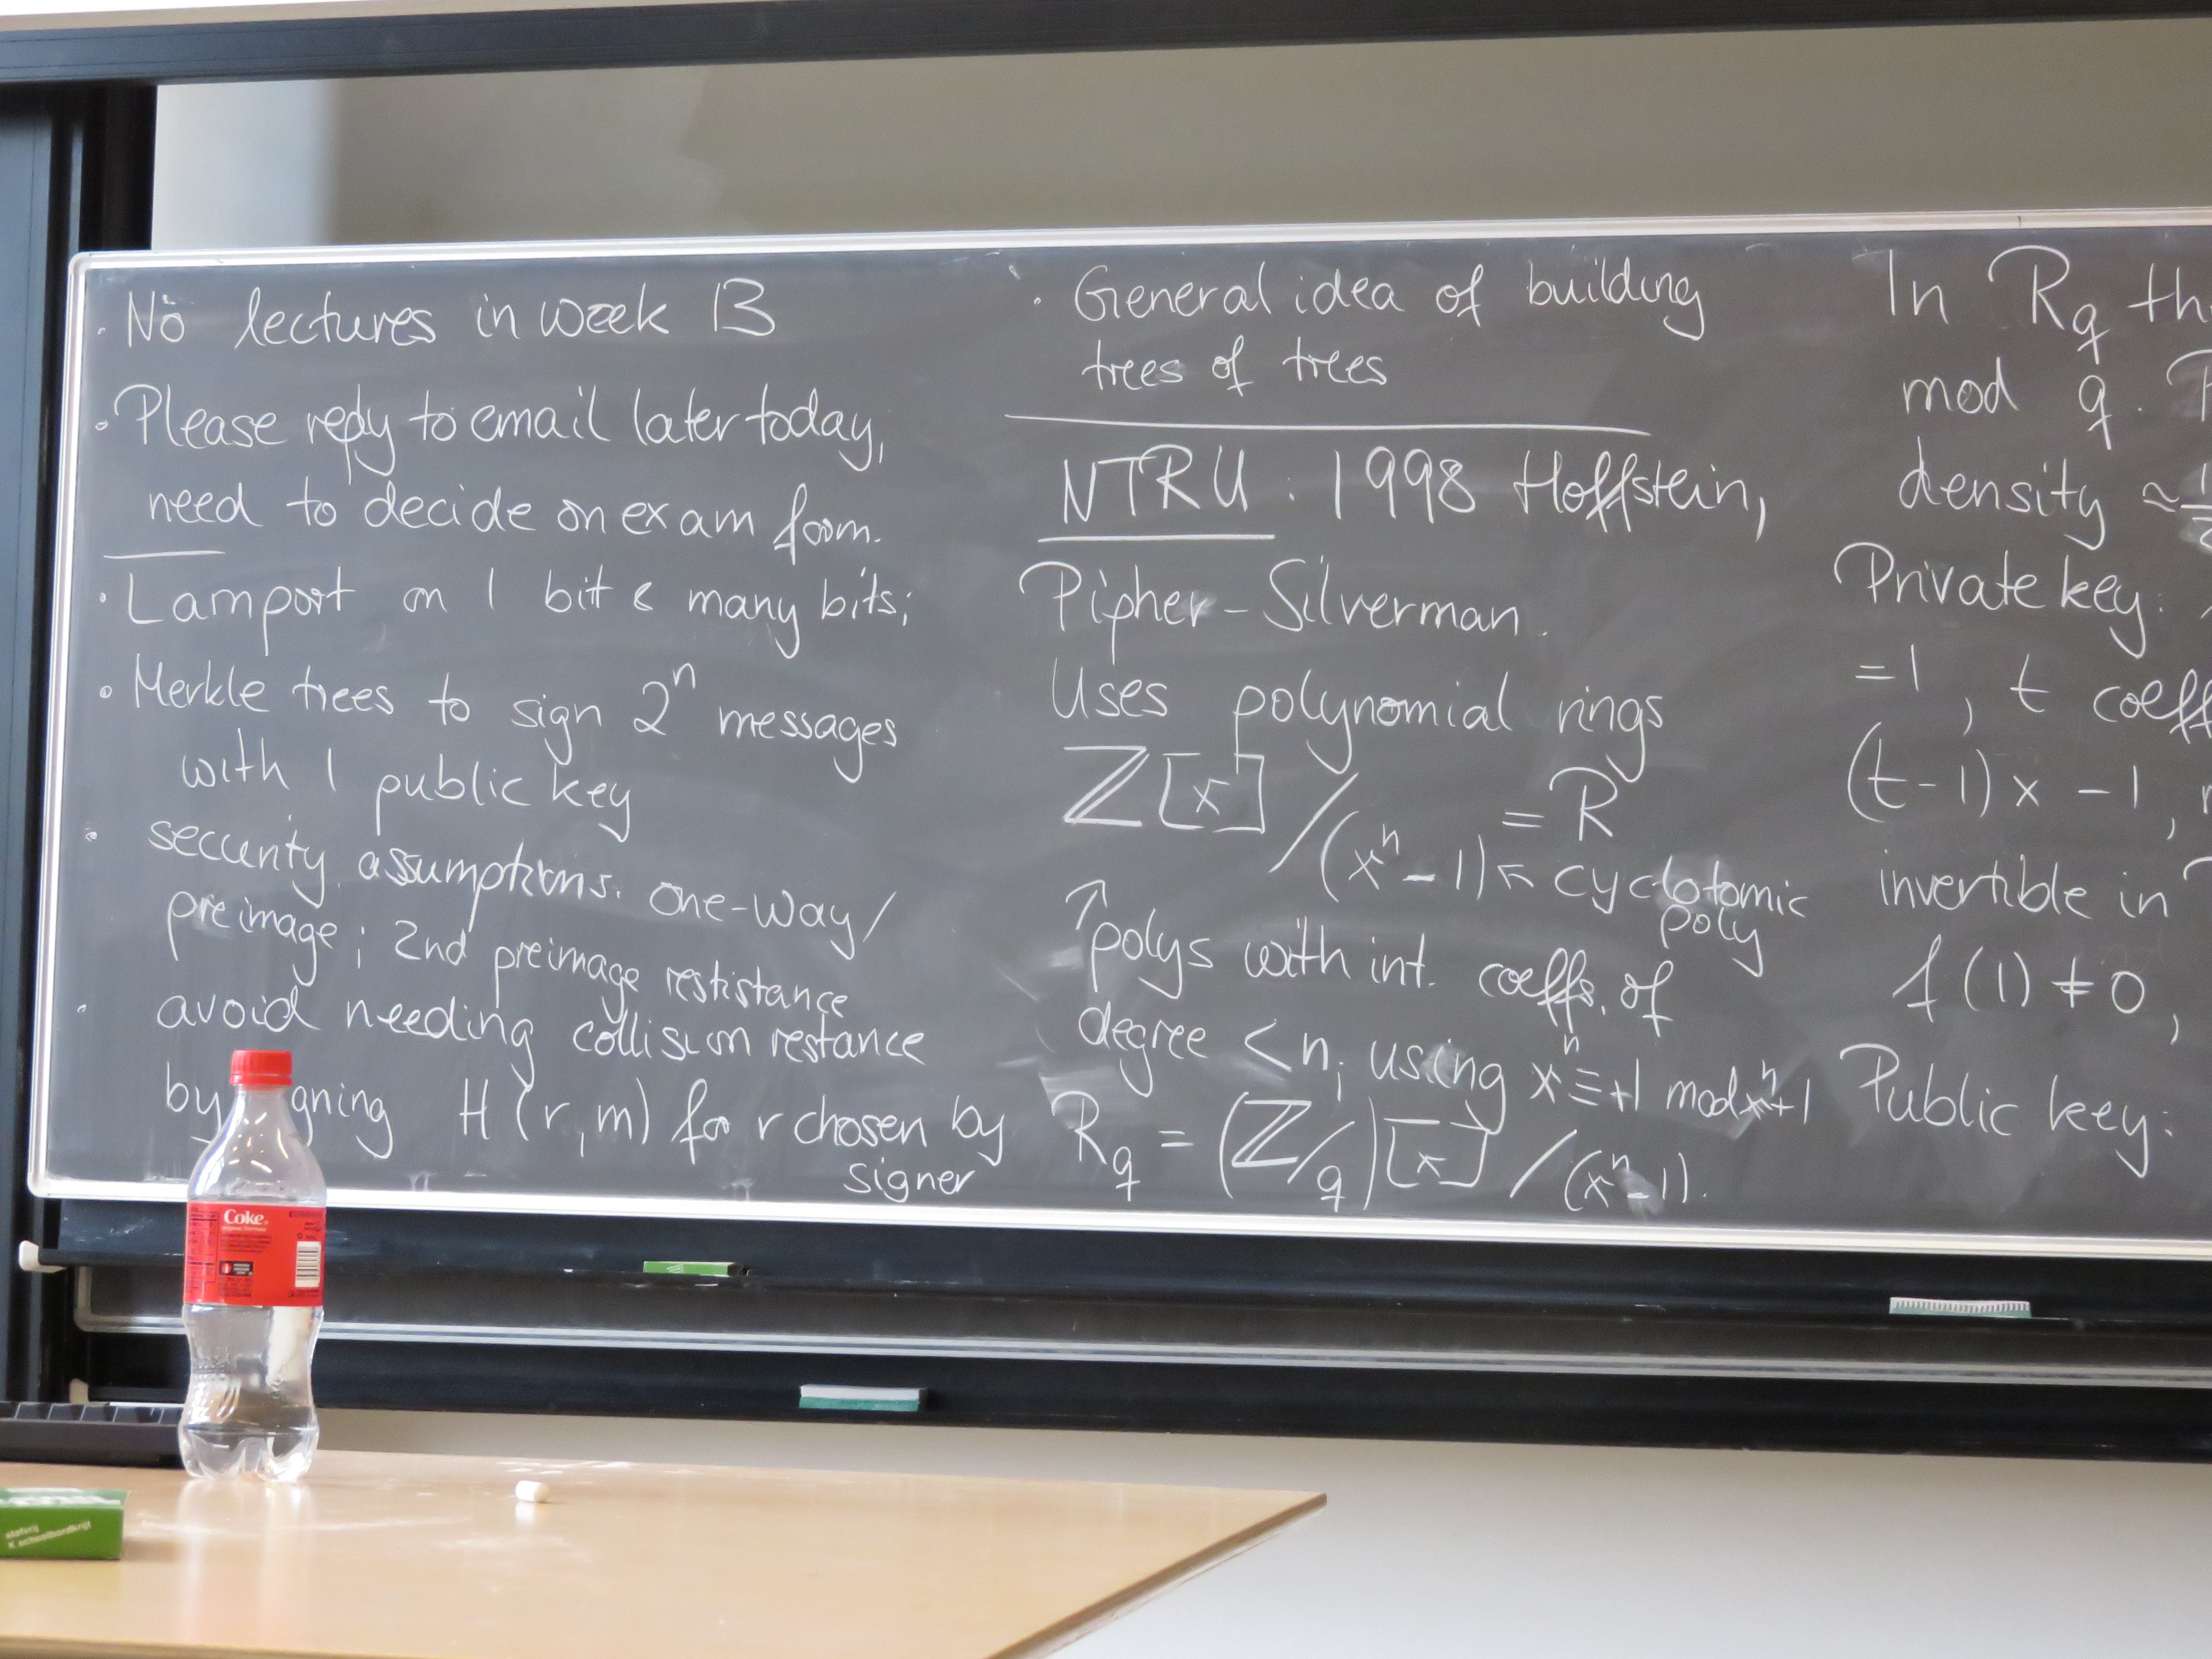 · No lectures in week 13
· Please reply to email later today,
need to decide on exam form.
· Lamport on 1 bit & many bits;
· Merkle trees to sign 2ⁿ messages
with 1 public key
· security assumptions. one-way/
preimage; 2nd preimage restistance
· avoid needing collision restance
by gning H(r,m) for r chosen by
signer
· General idea of building
trees of trees
NTRU: 1998 Hoffstein,
Pipher-Silverman.
Uses polynomial rings
ℤ[x]/(xⁿ-1) = R
↖ cyclotomic
poly
↑ polys with int. coeffs. of
degree < n; using xⁿ ≡ +1 mod xⁿ+1
R_q = (ℤ/q)[x]/(xⁿ-1).
In R_q th
mod q.
density ≈
Private key:
=1, t coeffs
(t-1) x -1,
invertible in
f(1) ≠ 0,
Public key:
Coke
schoolbordkrijt